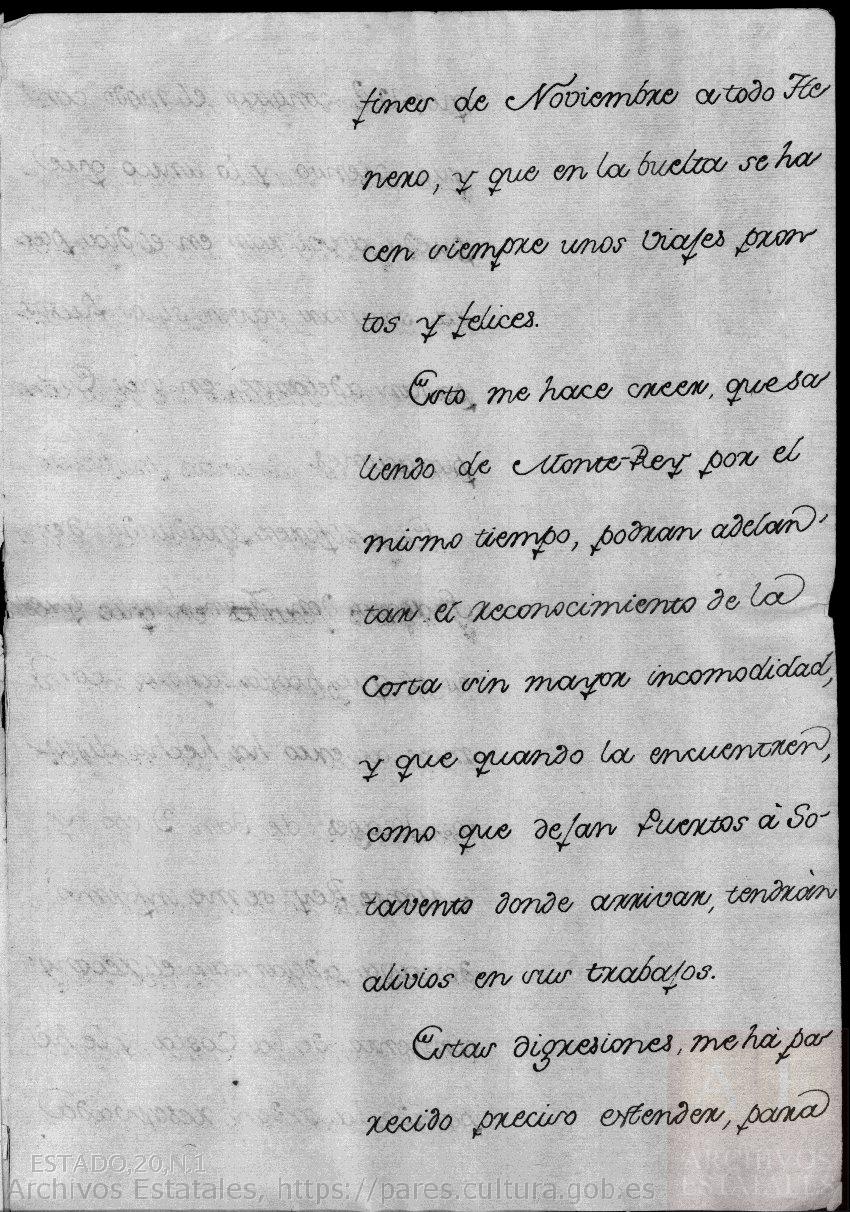 fines de Noviembre a todo He
nero, y que en la buelta se ha
cen siempre unos Viajes pron
tos y felices.
Esto, me hace creer, que sa
liendo de Monte-Rey por el
mismo tiempo, podran adelan
tar el reconocimiento de la
Costa sin mayor incomodidad,
y que quando la encuentren,
como que dejan Puertos à So-
tavento donde arrivar, tendràn
alivios en sus trabajos.
Estas digresiones, me há pa
recido preciso estender, para
ESTADO,20,N,1
Archivos Estatales, https://pares.cultura.gob.es
ARCHIVOS
ESTATALES